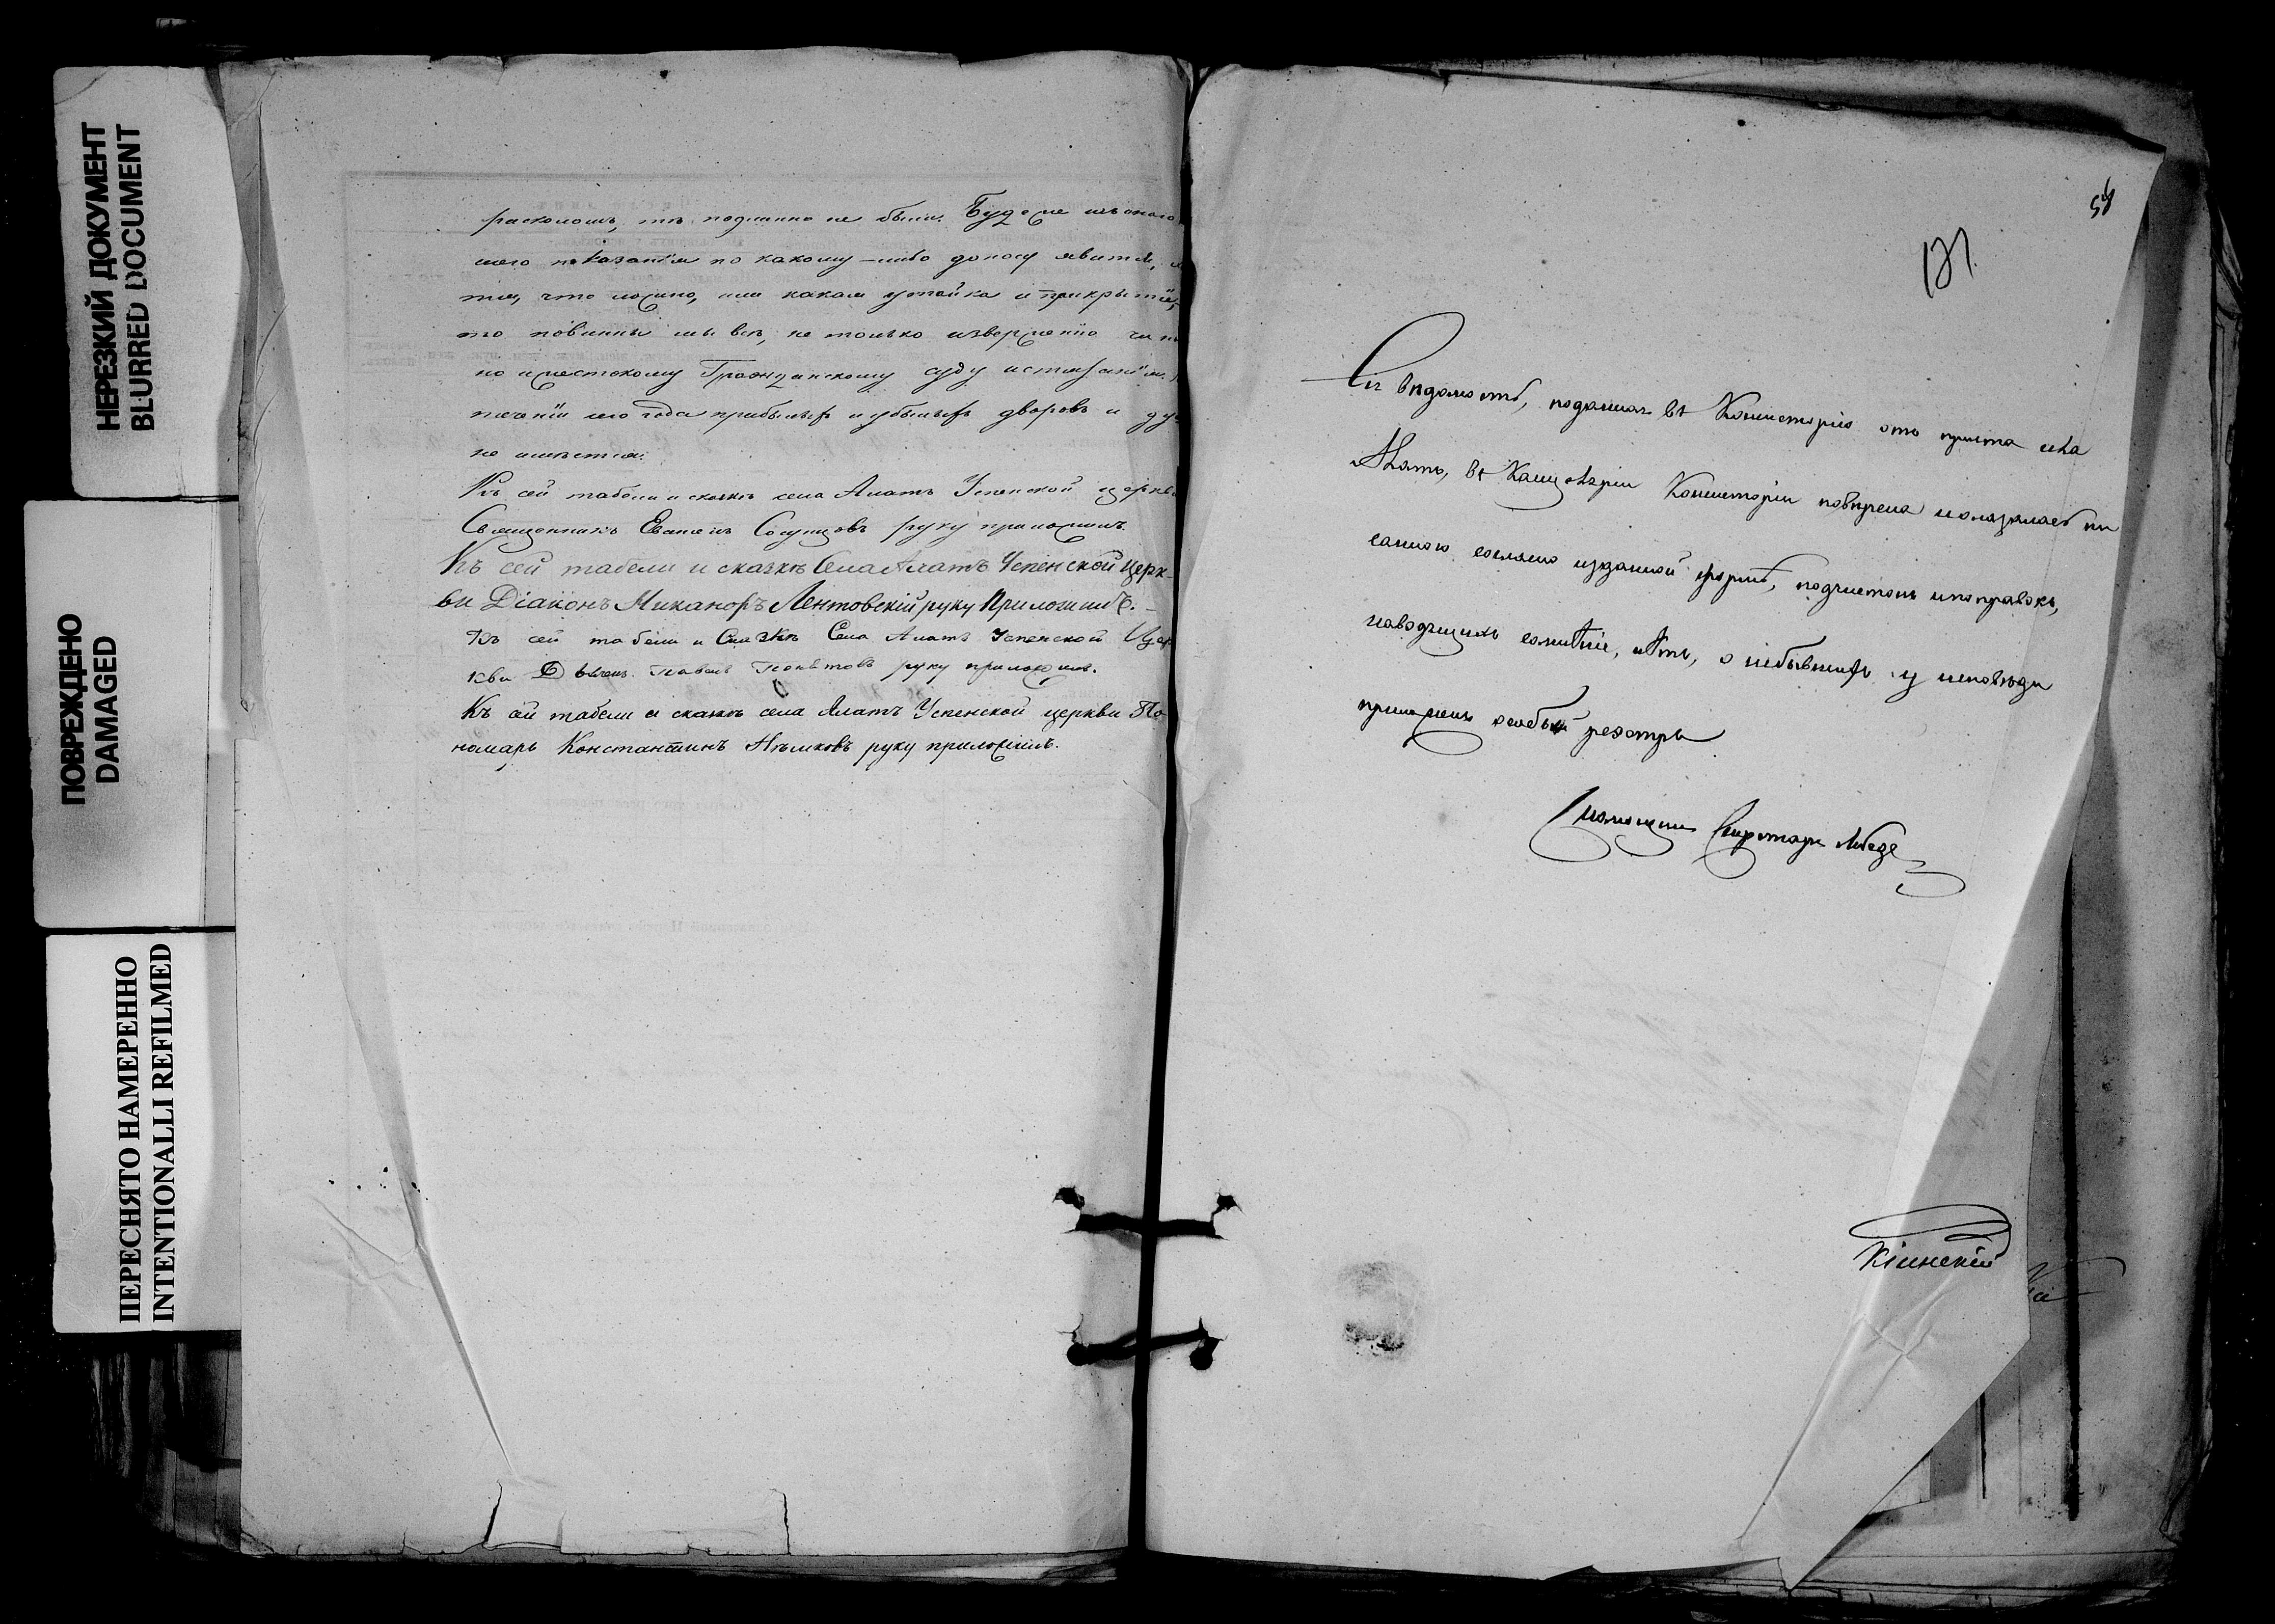 НЕРЕЗКИЙ ДОКУМЕНТ
BLURRED DOCUMENT
ПОВРЕЖДЕНО
DAMAGED
ПЕРЕСНЯТО НАМЕРЕННО
INTENTIONALLI REFILMED
расколомъ, тѣ подлинно не были. Будеже изъ оного
моего показанія по какому-либо доносу явится,
что ложно, или какая утайка и прикрытіе,
то повинны мы всѣ, не только изверженію
но и жестокому Гражданскому суду истязанія.
теченіи сего года прибылыхъ и убылыхъ дворовъ и
не имѣется.
Къ сей табели и сказкѣ села Алатъ Успенской церкви
Священникъ руку приложилъ.
Къ сей табели и сказкѣ Села Алатъ Успенской Церк-
ви Діаконъ Никаноръ Лентовскій руку приложилъ.
Къ сей табели и Сказкѣ Села Алатъ Успенской Цер
кви Дьячекъ Павелъ руку приложилъ.
Къ сей табели и сказкѣ села Алатъ Успенской церкви По-
номарь Константинъ Нѣмковъ руку приложилъ.
58
131
Сія вѣдомость, поданная въ Консисторію отъ причта села
Алатъ, въ Канцеляріи Консисторіи повѣрена и оказалась пи
санною согласно изданной формѣ, подчистокъ и поправокъ,
наводящихъ сомнѣніе, нѣтъ, о небывшихъ у исповѣди
приложенъ особый реэстръ
Секретарь
Кіинскій